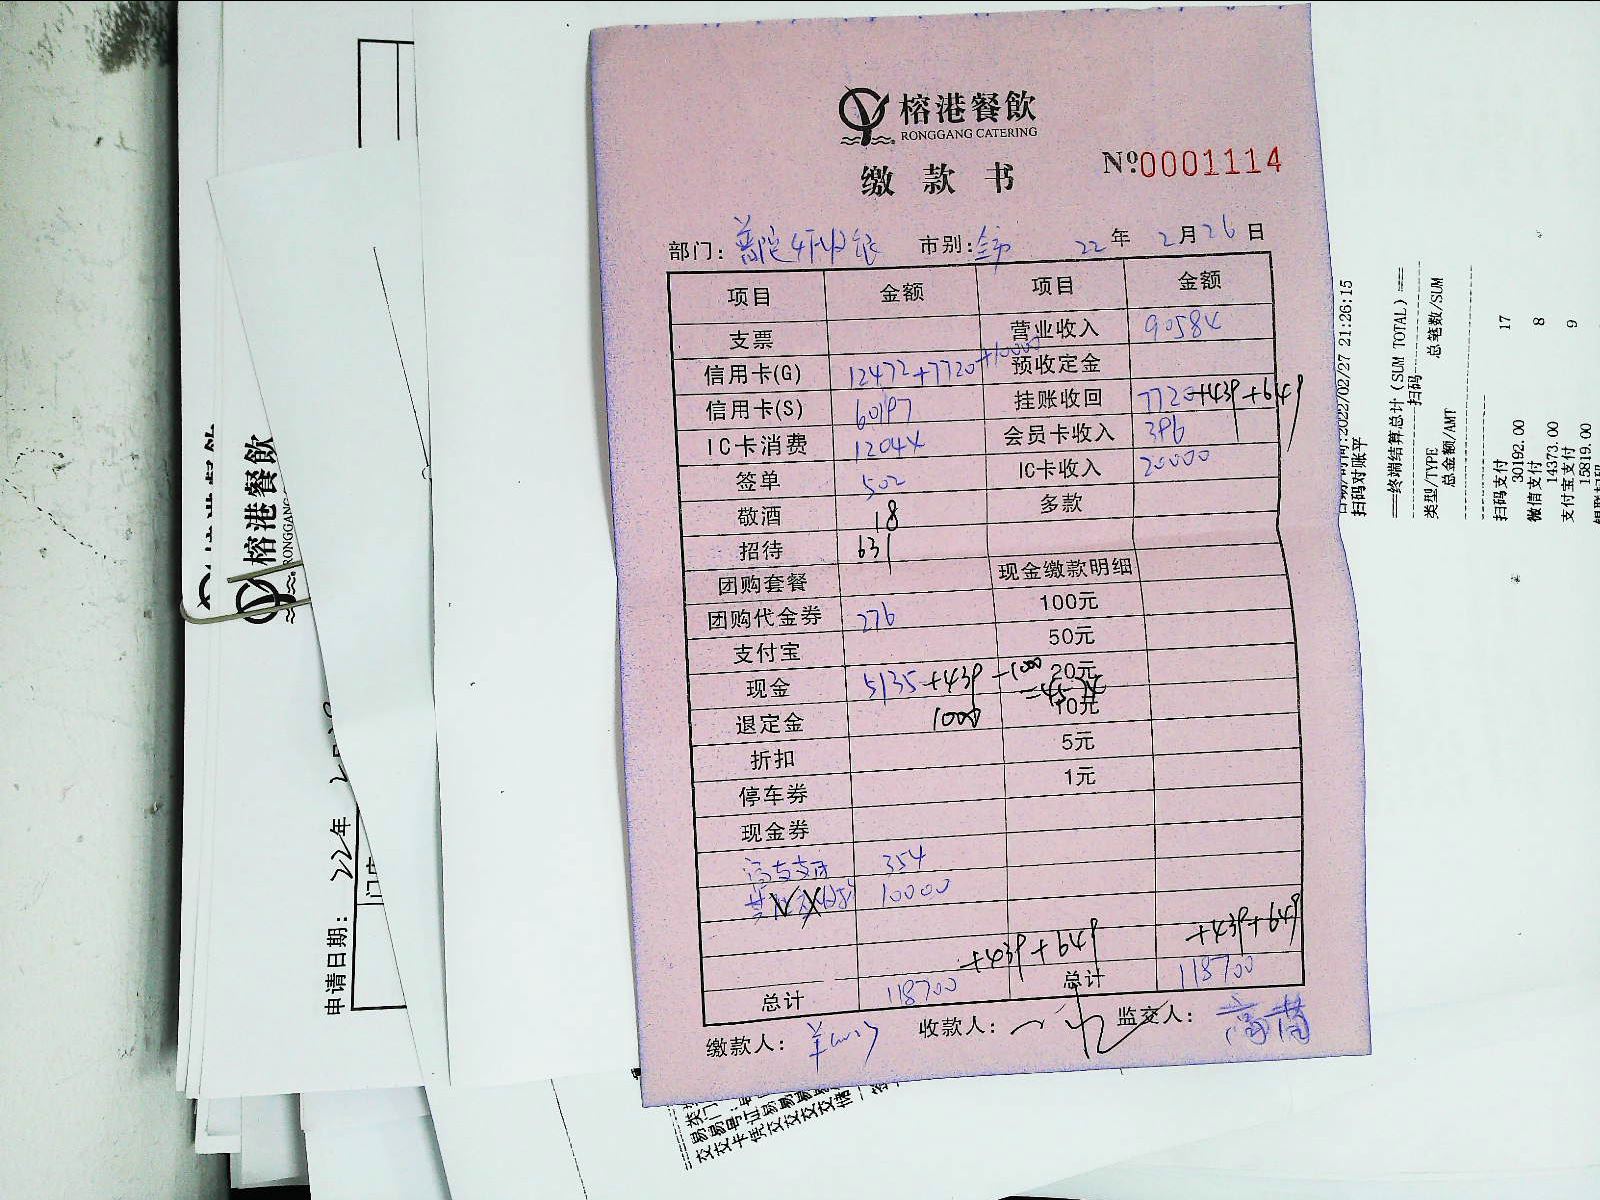 榕港餐飲
RONGGANG CATERING
缴款书
№0001114
部门: 普陀 市别: 全市 22年 2月26日
项目 金额 项目 金额
支票 营业收入 90584
信用卡(G) 12472+7720+10000 预收定金
信用卡(S) 60197 挂账收回 7720+439+649
IC卡消费 12044 会员卡收入 396
签单 502 IC卡收入 20000
敬酒 18 多款
招待 631
团购套餐 现金缴款明细
团购代金券 276 100元
支付宝 50元
现金 5135+439-1000 20元
退定金 1000 10元
折扣 5元
停车券 1元
现金券
354
10000
+439+649 +439+649
总计 118700 总计 118700
缴款人: 收款人: 监交人:
榕港餐飲
RONGGANG
申请日期: 22年
2022/02/27 21:26:15
扫码对账平
===终端结算总计 (SUM TOTAL) ===
扫码
类型/TYPE 总笔数/SUM
总金额/AMT
扫码支付 17
30192.00
微信支付 8
14373.00
支付宝支付 9
15819.00